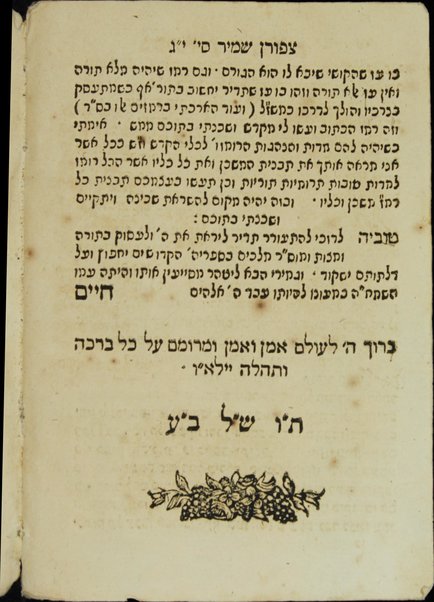 צפורן שמיר סי׳ י״ג
בו עו שהקושי שיבא לו הוא הגורם ׃ וגם רמז שיהיה מלא תורה
ואין עוז אלא תורה וזהו בו עוז שתדיר יחשוב בתור׳ אף כשמתעסק
בצרכיו והולך לדרכו כמש״ל ( ועוד הארכתי ברמזים אלו בס״ד )
וזה רמז הכתוב ועשו לי מקדש ושכנתי בתוכם ממש ׃ אימתי
כשיהיה להם מדות והנהגות הרומזו׳ לכלי הקדש וז״ש ככל אשר
אני מראה אותך את תבנית המשכן ואת כל כליו אשר הכל רומז
למדות טובות תרומיות תוריות וכן תעשו בעצמכם תבנית כל
רמזי משכן וכליו ׃ ובזה יהיה מקום להשראת שכינה ויתקיים
ושכנתי בתוכם ׃
טוביה לדוכי להתעורר תדיר ליראת את ה׳ ולעסוק בתורה
ומצות ומוס״ר מלכים בספריה׳ הקדושים יחפוץ ועל
דלתותם ישקוד ׃ וגמירי הבא ליטהר מסייעין אותו והיתה עמו
השמח״ה במעוזו להיותו עבד ה׳ אלהים חיים
ברוך ה׳ לעולם אמן ואמן ומרומם על כל ברכה
ותהלה יילא״ו ׃
ת״ו ש״ל ב״ע